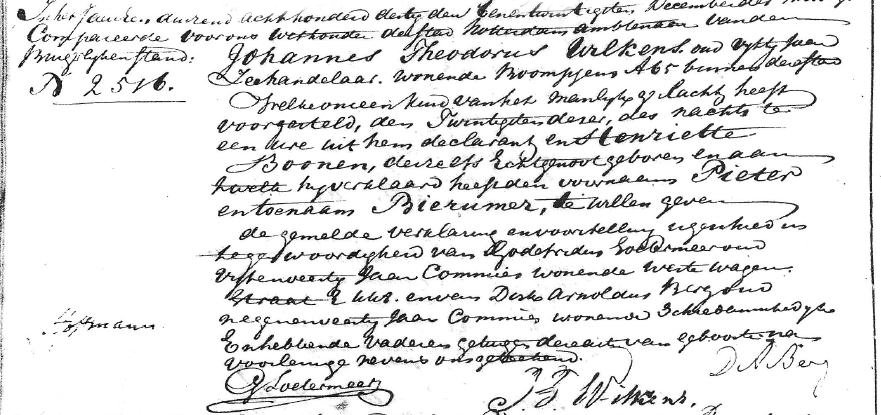 In het Jaar een duizend acht honderd dertig den Eenentwintigsten December des
Compareerde voor ons Wethouder der Stad Rotterdam ambtenaar van den
Burgerlyken Stand: Johannes Theodorus Wilkens oud vyftig Jaar
N 2516. Zeehandelaar. wonende Boompjens A 65 binnen dese stad
Welke ons een kind van het Manlyke geslacht heeft
voorgesteld, den Twintigsten deser, des nachts te
een ure uit hem declarant en Henriette
Boonen, deszelfs Echtgenoot geboren en aan
hetwelk hy verklaard heeft den voornaam Pieter
en toenaam Bierumer, te willen geven
de gemelde verklaring en voorstelling is geschied in
tegenwoordigheid van Godefridus Loetermeer oud
Vyfenveertig Jaar Commies wonende Weste Wagen
Straat E en van Dirk Arnoldus Berg oud
negenenveertig Jaar Commies wonende Schiedamschedyk
En hebbende vader en getuigen deze act van geboorte na
voorlezinge nevens ons getekend.
G Loetermeer
D A Berg
J. T. Wilkens.